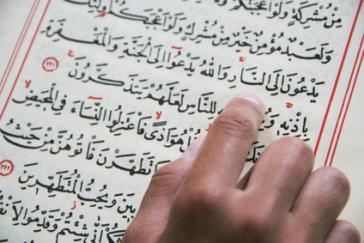 مِنْ مُشْرِكَةٍ وَلَوْ اَعْجَبَتْكُمْ وَلَا
وَلَعَبْدٌ مُؤْمِنٌ خَيْرٌ مِنْ مُشْرِكٍ وَلَوْ اَعْجَبَكُمْ
يَدْعُونَ اِلَى النَّارِ وَاللّٰهُ يَدْعُٓوا اِلَى الْجَنَّةِ وَالْمَغْفِرَةِ
بِاِذْنِهِ لِلنَّاسِ لَعَلَّهُمْ يَتَذَكَّرُونَ ٢٢١
هُوَ اَذًى فَاعْتَزِلُوا النِّسَٓاءَ فِي الْمَحِيضِ
تَطَهَّرْنَ فَأْتُوهُنَّ مِنْ حَيْثُ
وَيُحِبُّ الْمُتَطَهِّرِينَ ٢٢٢
شِئْتُمْ وَقَدِّمُوا